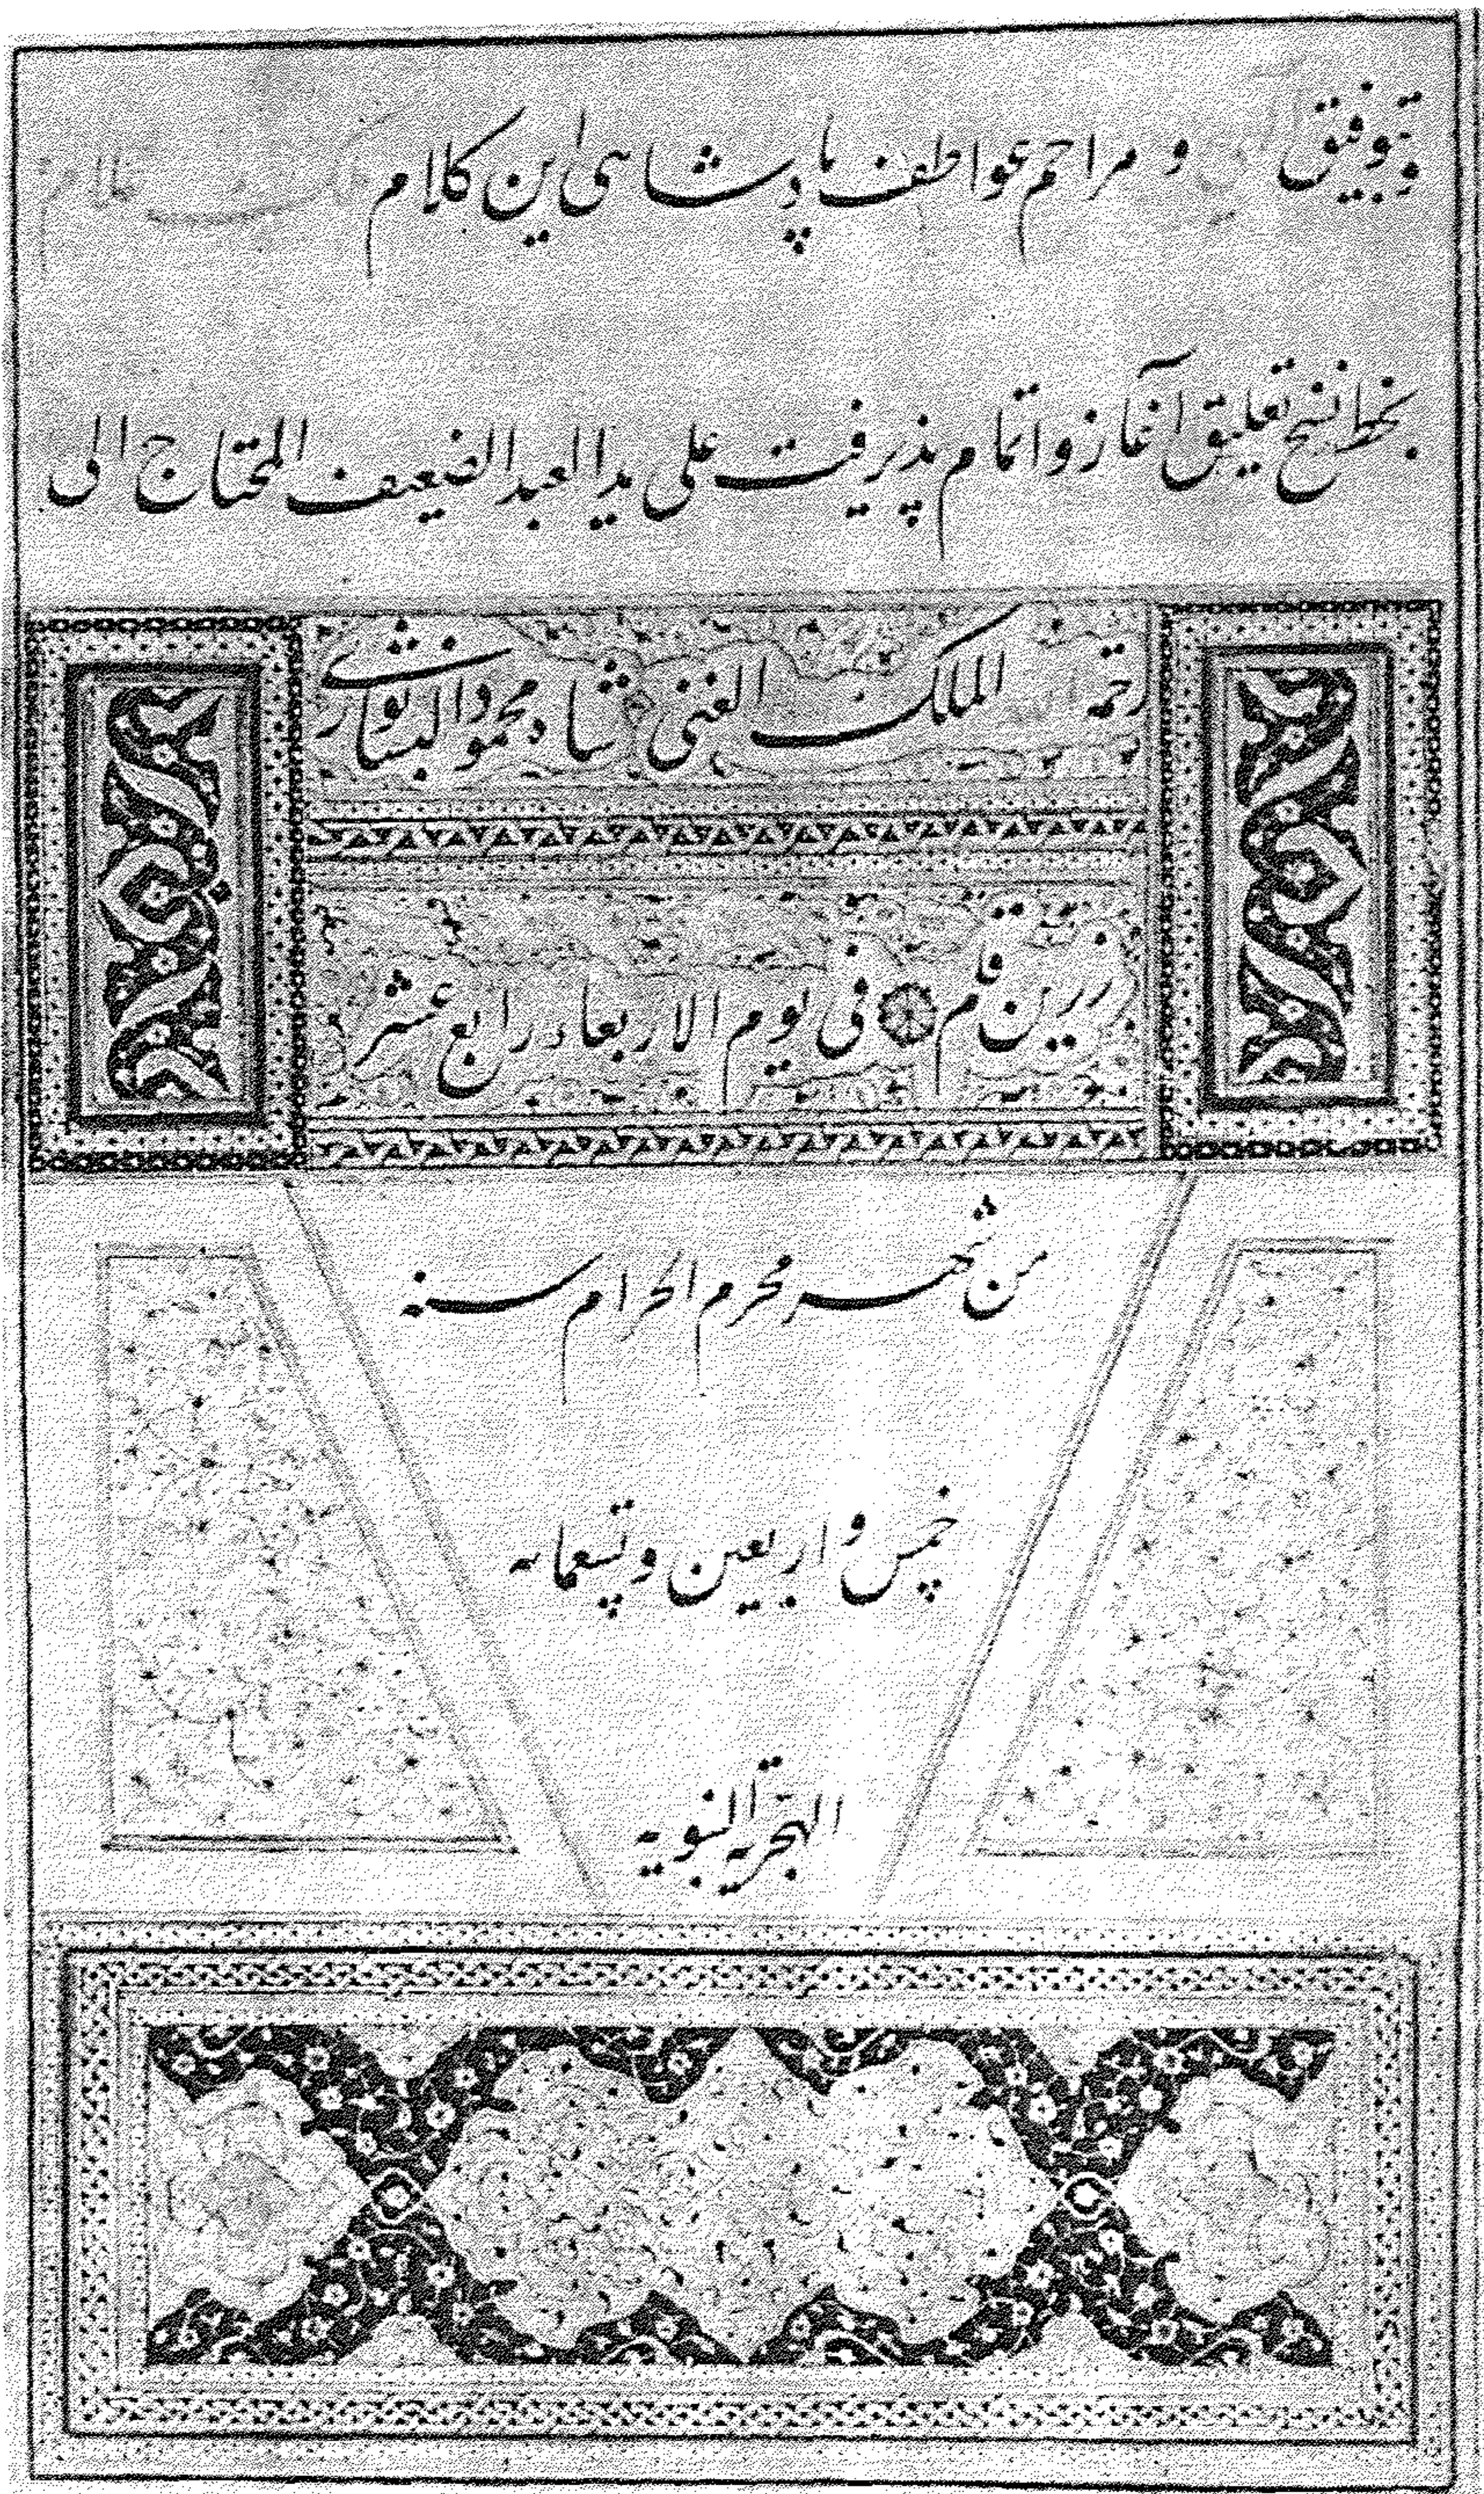 بتوفیق و مراحم عواطف پادشاهی این کلام
بخط نسخ تعلیق آغاز و اتمام پذیرفت علی ید العبد الضعیف المحتاج الی
رحمة الملک الغنی شاه محمود النیشابوری
زرین قلم فی یوم الاربعاء رابع عشر
من شهر محرم الحرام سنه
خمس و اربعین و تسعمایه
الهجریة النبویه